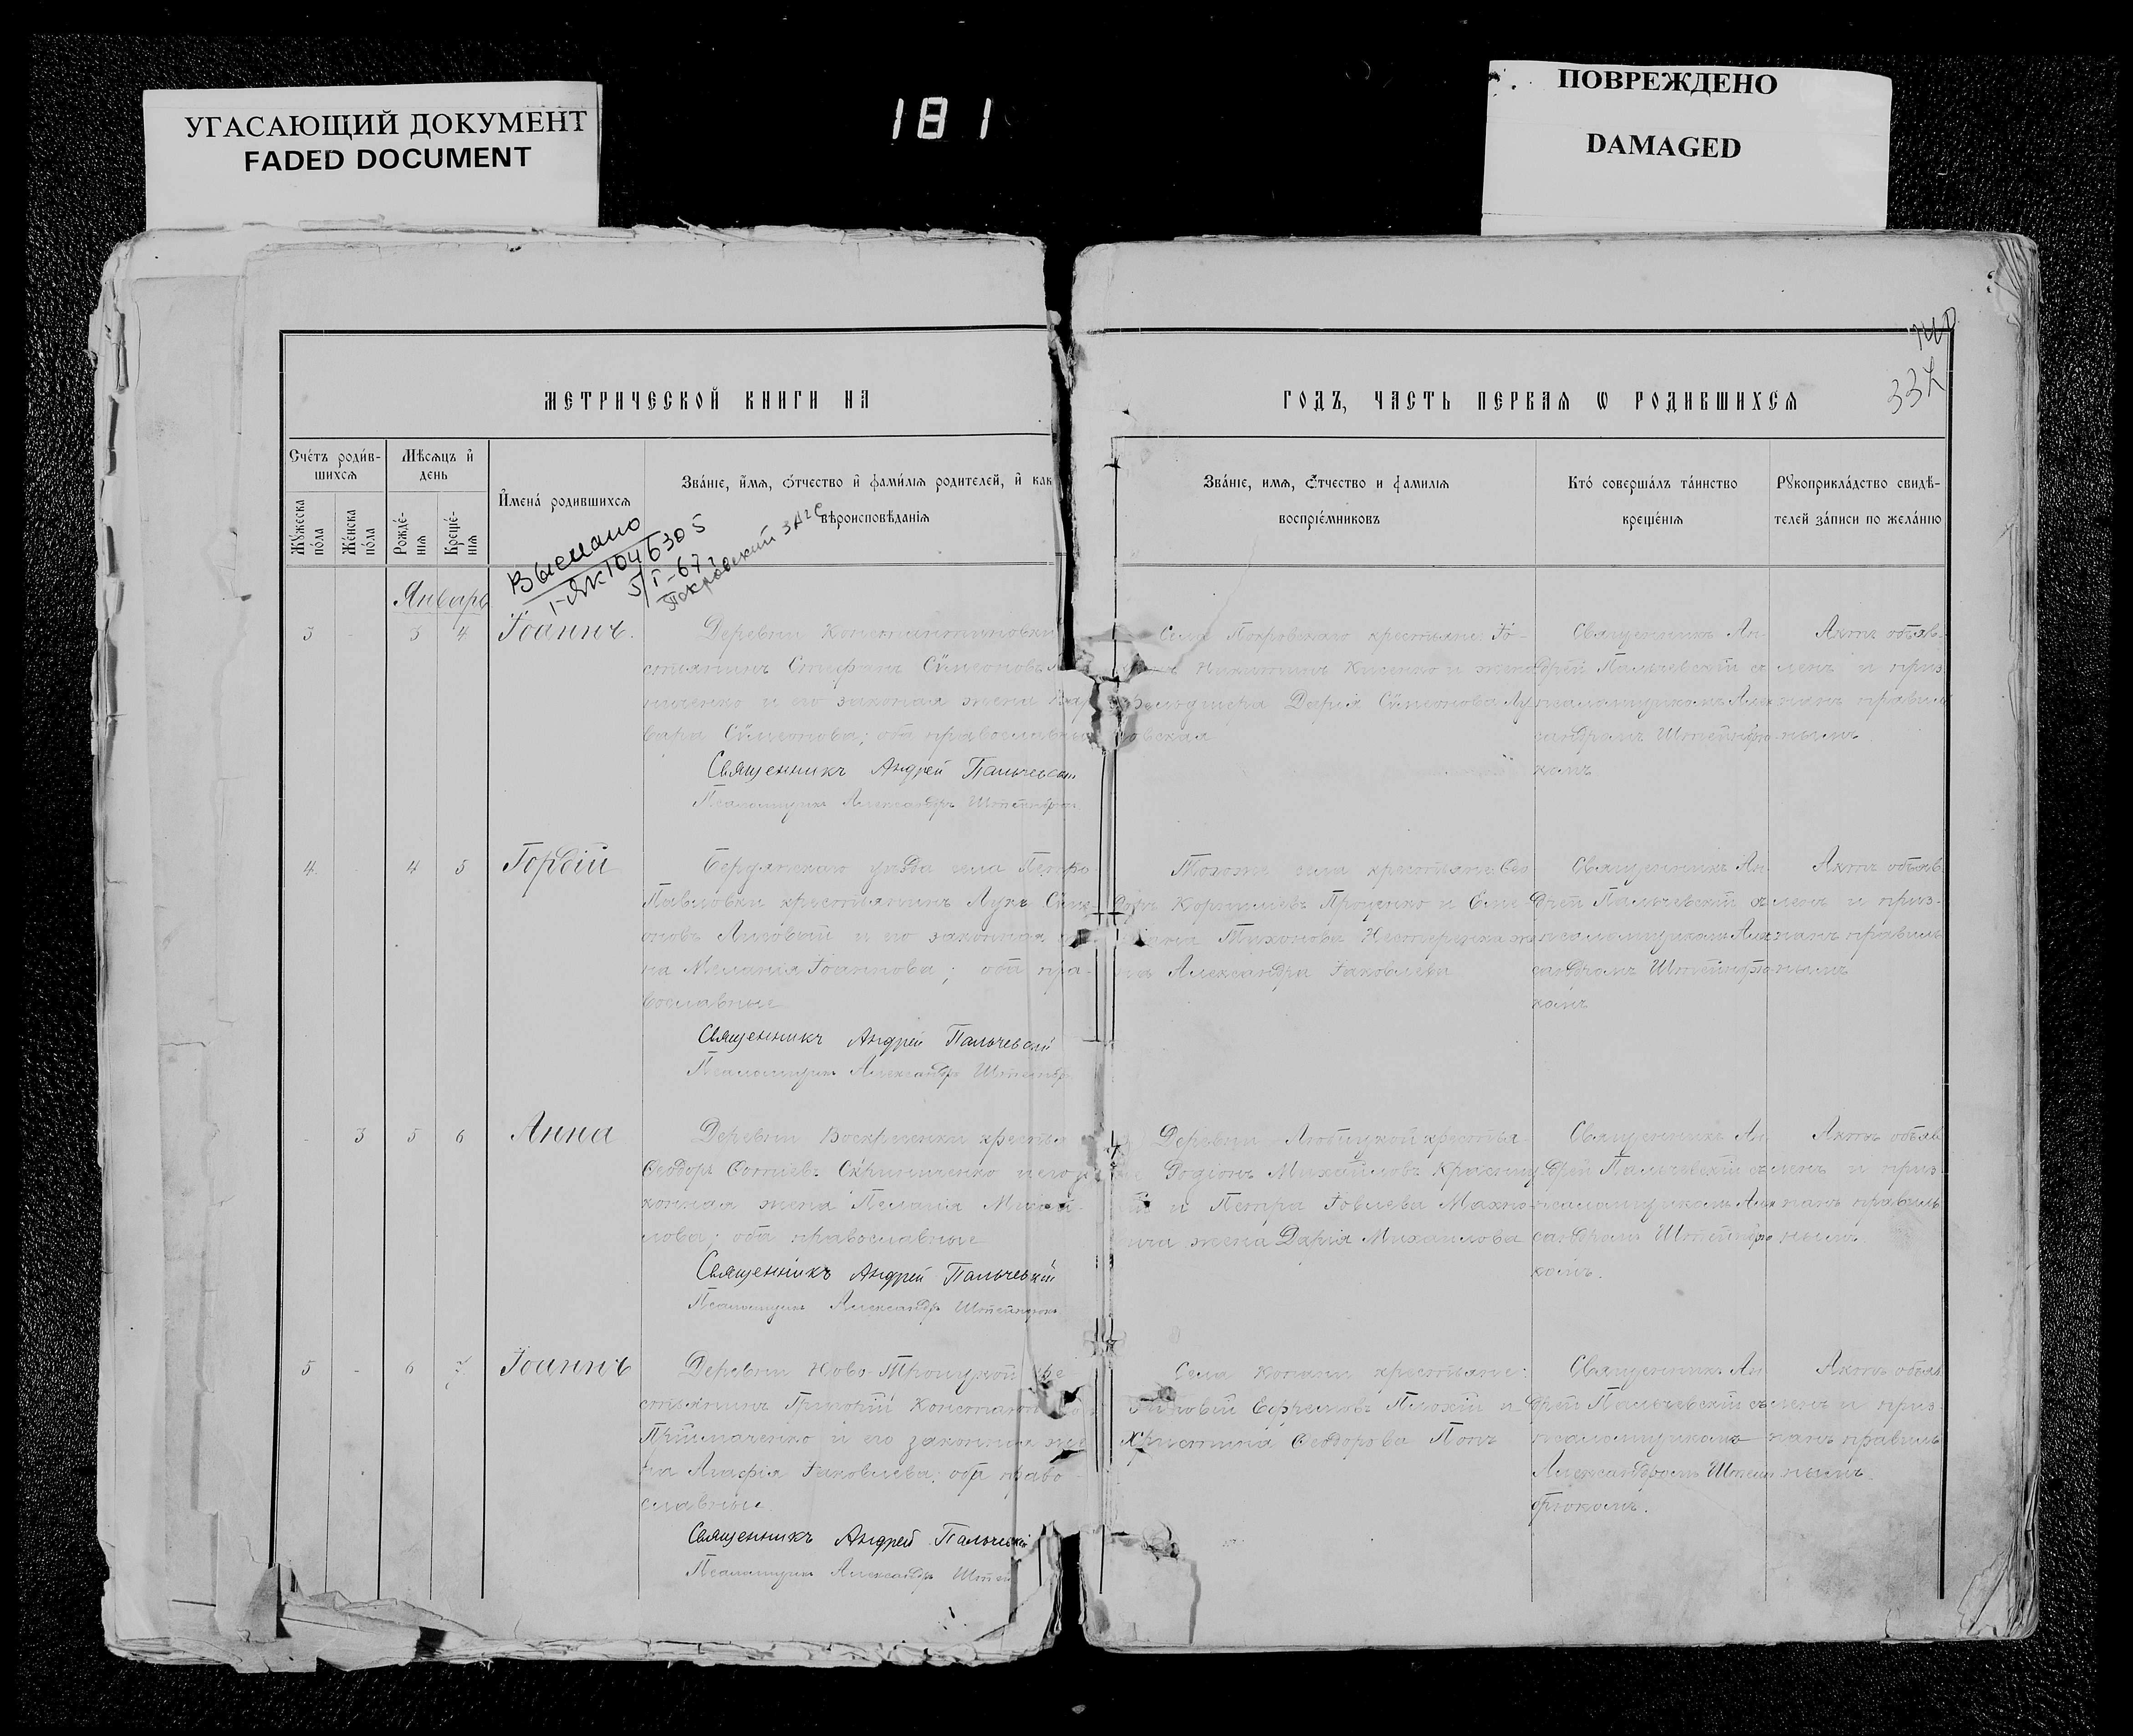 УГАСАЮЩИЙ ДОКУМЕНТ
FADED DOCUMENT
181
ПОВРЕЖДЕНО
DAMAGED
332
МЕТРИЧЕСКОЙ КНИГИ НА
ГОДЪ, ЧАСТЬ ПЕРВАЯ Ѡ РОДИВШИХСЯ
Счетъ родив-
шихся
Мужеска пола
Женска пола
Мѣсяцъ и
день
Рожде-
нія
Креще-
нія
Имена родившихся
Званіе, имя, отчество и фамилія родителей, и как
вѣроисповѣданія
Званіе, имя, отчество и фамилія
воспріемниковъ
Кто совершалъ таинство
крещенія
Рукоприкладство свидѣ-
телей записи по желанію
Выслано
I-ЯК 1046305
5/I-67 г
Покровский ЗАГС
Январь
3 - 3 4 Іоаннъ.
Деревни Константиновки
стьянинъ Стефанъ Сѵмеоновъ
ниченко и его законная жена Вар
вара Сѵмеонова; оба православные
Священникъ Андрей Пальчевскій
Псаломщикъ Александръ Штейнфрок
Села Покровскаго крестьяне: Іо-
Никитинъ Кисенко и жена
фельдшера Дарія Сѵмеонова Лу
ковская
Священникъ Ан-
дрей Пальчевскій съ
псаломщикомъ Алек
сандромъ Штейнфрю
комъ
Актъ объяв-
ленъ и приз
нанъ правиль
нымъ.
4. - 4 5 Гордій
Бердянскаго уѣзда села Петро
Павловки крестьянинъ Лука Сѵме
оновъ Лисовый и его законная
на Меланія Іоаннова; оба пра-
вославные
Священникъ Андрей Пальчевскій
Псаломщикъ Александръ Штейнфр
Тогоже села крестьяне: Ѳео
доръ Корнилievъ Проценко и
Тихонова Нестеренка же
на Александра Іаковлева
Священникъ Ан-
дрей Пальчевскій съ
псаломщикомъ Алек
сандромъ Штейнфрю
комъ
Актъ объяв
ленъ и приз-
нанъ правиль
нымъ
- 3 5 6 Анна
Деревни Воскресенки крестья
Ѳеодоръ Скрипниченко и его за
конная жена Пелагія Михай-
лова; оба православные
Священникъ Андрей Пальчевскій
Псаломщикъ Александръ Штейнфрок
Деревни Любицкой крестья-
не Родіонъ Михайловъ
и Петра Іовлева Махно
жена Дарія Михайлова
Священникъ Ан
дрей Пальчевскій съ
псаломщикомъ Алек
сандромъ Штейнфрю
комъ.
Актъ объяв
ленъ и приз-
нанъ правиль
нымъ.
5 - 6 7 Іоаннъ
Деревни Ново-Троицкой кре
стьянинъ Григорій Константиновъ
Приймаченко и его законная же
на Агафія Іаковлева; оба право-
славные.
Священникъ Андрей Пальчевскій
Псаломщикъ Александръ Штей
Села Копани крестьяне:
Зиновій Ефремовъ Плохій и
Христина Ѳеодорова Попъ
Священникъ Ан
дрей Пальчевскій съ
псаломщикомъ
Александромъ Штейн
фрюкомъ.
Актъ объяв
ленъ и приз-
нанъ правиль
нымъ.